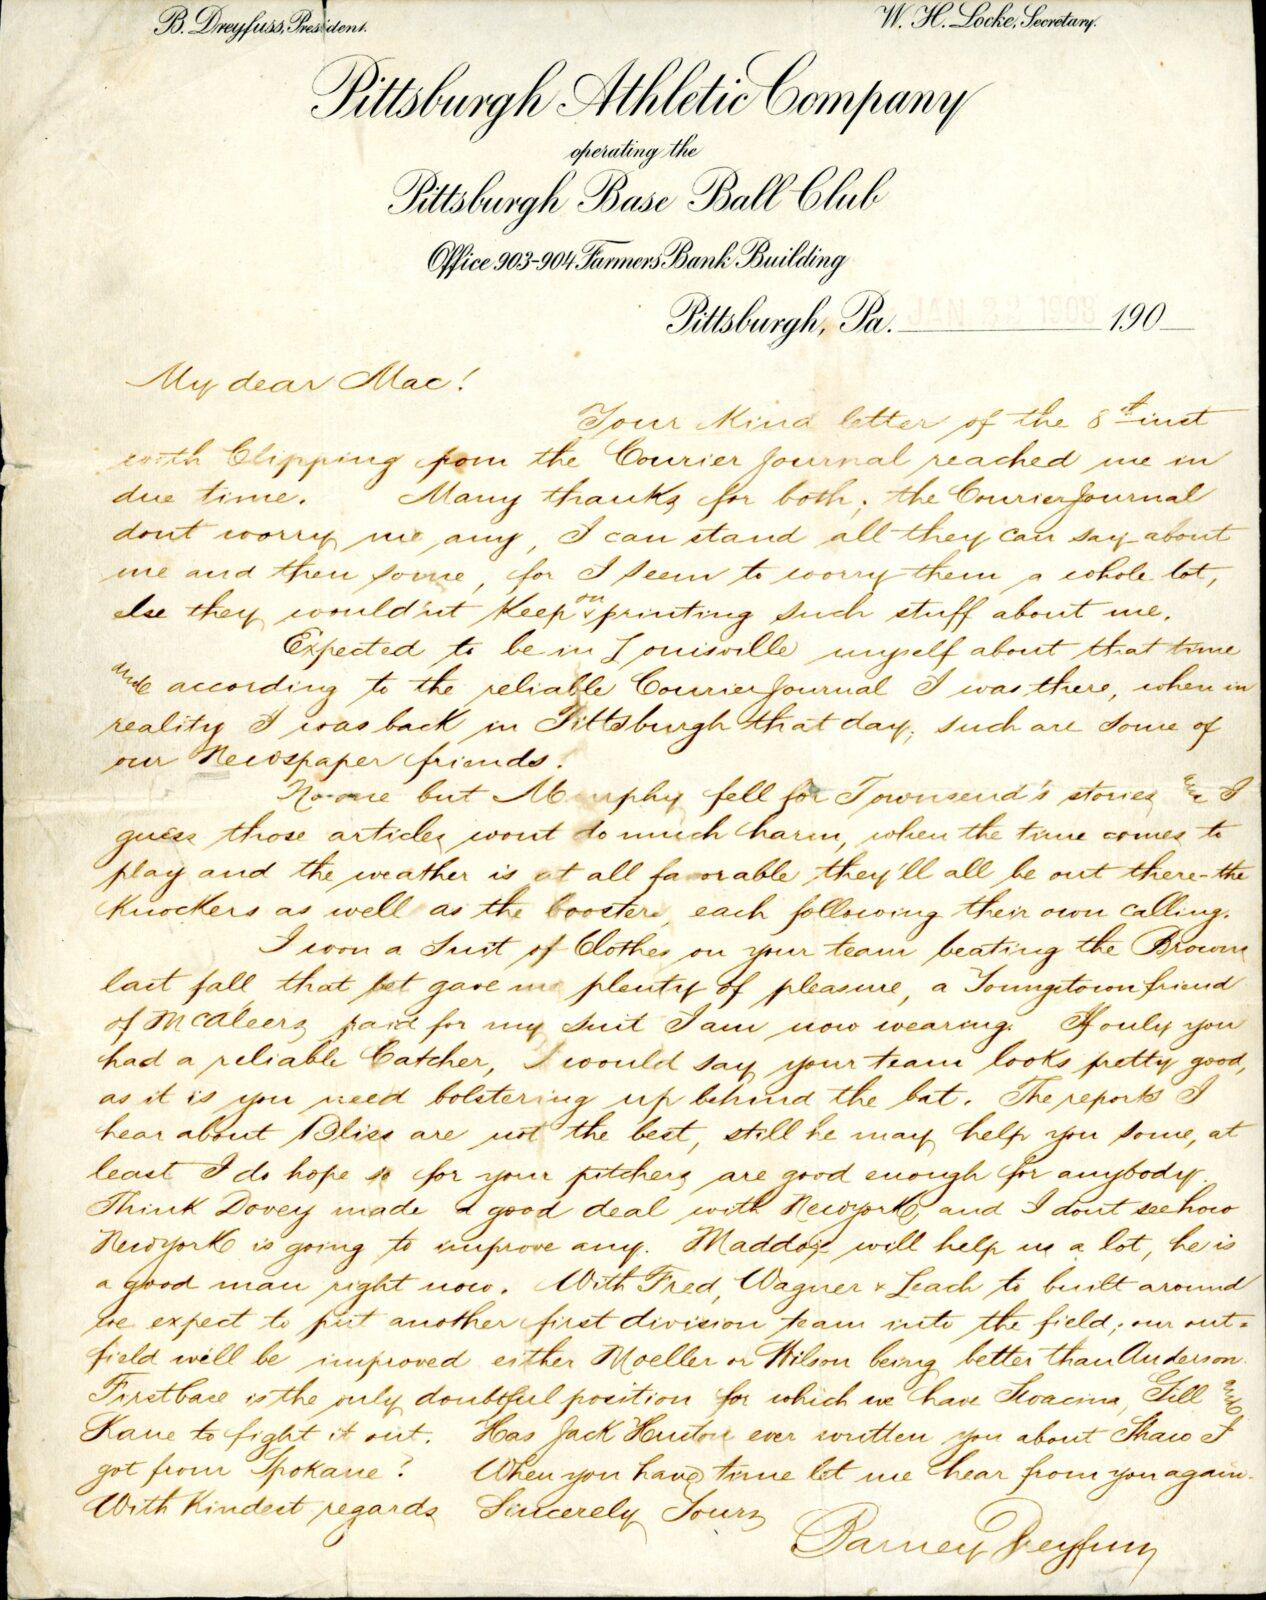 B. Dreyfuss, President.
W. H. Locke, Secretary.
Pittsburgh Athletic Company
operating the
Pittsburgh Base Ball Club
Office 903-904 Farmers Bank Building
Pittsburgh, Pa. JAN 22 1908 190
My dear Mac!
Your kind letter of the 8th inst
with Clipping from the Courier Journal reached me in
due time. Many thanks for both; the Courier Journal
dont worry me any, I can stand all they can say about
me and then some, for I seem to worry them a whole lot,
else they would'nt keep on printing such stuff about me.
Expected to be in Louisville myself about that time
and according to the reliable Courier Journal I was there, when in
reality I was back in Pittsburgh that day; such are some of
our Newspaper friends.
No one but Murphy fell for Townsend's stories and I
guess those articles wont do much harm, when the time comes to
play and the weather is at all favorable they'll all be out there - the
Knockers as well as the boosters, each following their own calling.
I won a Suit of Clothes on your team beating the Browns
last fall, that bet gave me plenty of pleasure, a Youngstown friend
of McAleers paid for my suit I am now wearing. If only you
had a reliable Catcher, I would say your team looks pretty good,
as it is you need bolstering up behind the bat. The reports I
hear about Bliss are not the best, still he may help you some, at
least I do hope so for your pitchers are good enough for anybody.
Think Dovey made a good deal with New York, and I dont see how
New York is going to improve any. Maddox will help us a lot, he is
a good man right now. With Fred, Wagner & Leach to built around
we expect to put another first division team into the field; our out=
field will be improved either Moeller or Wilson being better than Anderson.
First base is the only doubtful position for which we have Swacina, Gill and
Kane to fight it out. Has Jack Huston ever written you about Shaw I
got from Spokane? When you have time let me hear from you again.
With Kindest regards Sincerely Yours
Barney Dreyfuss